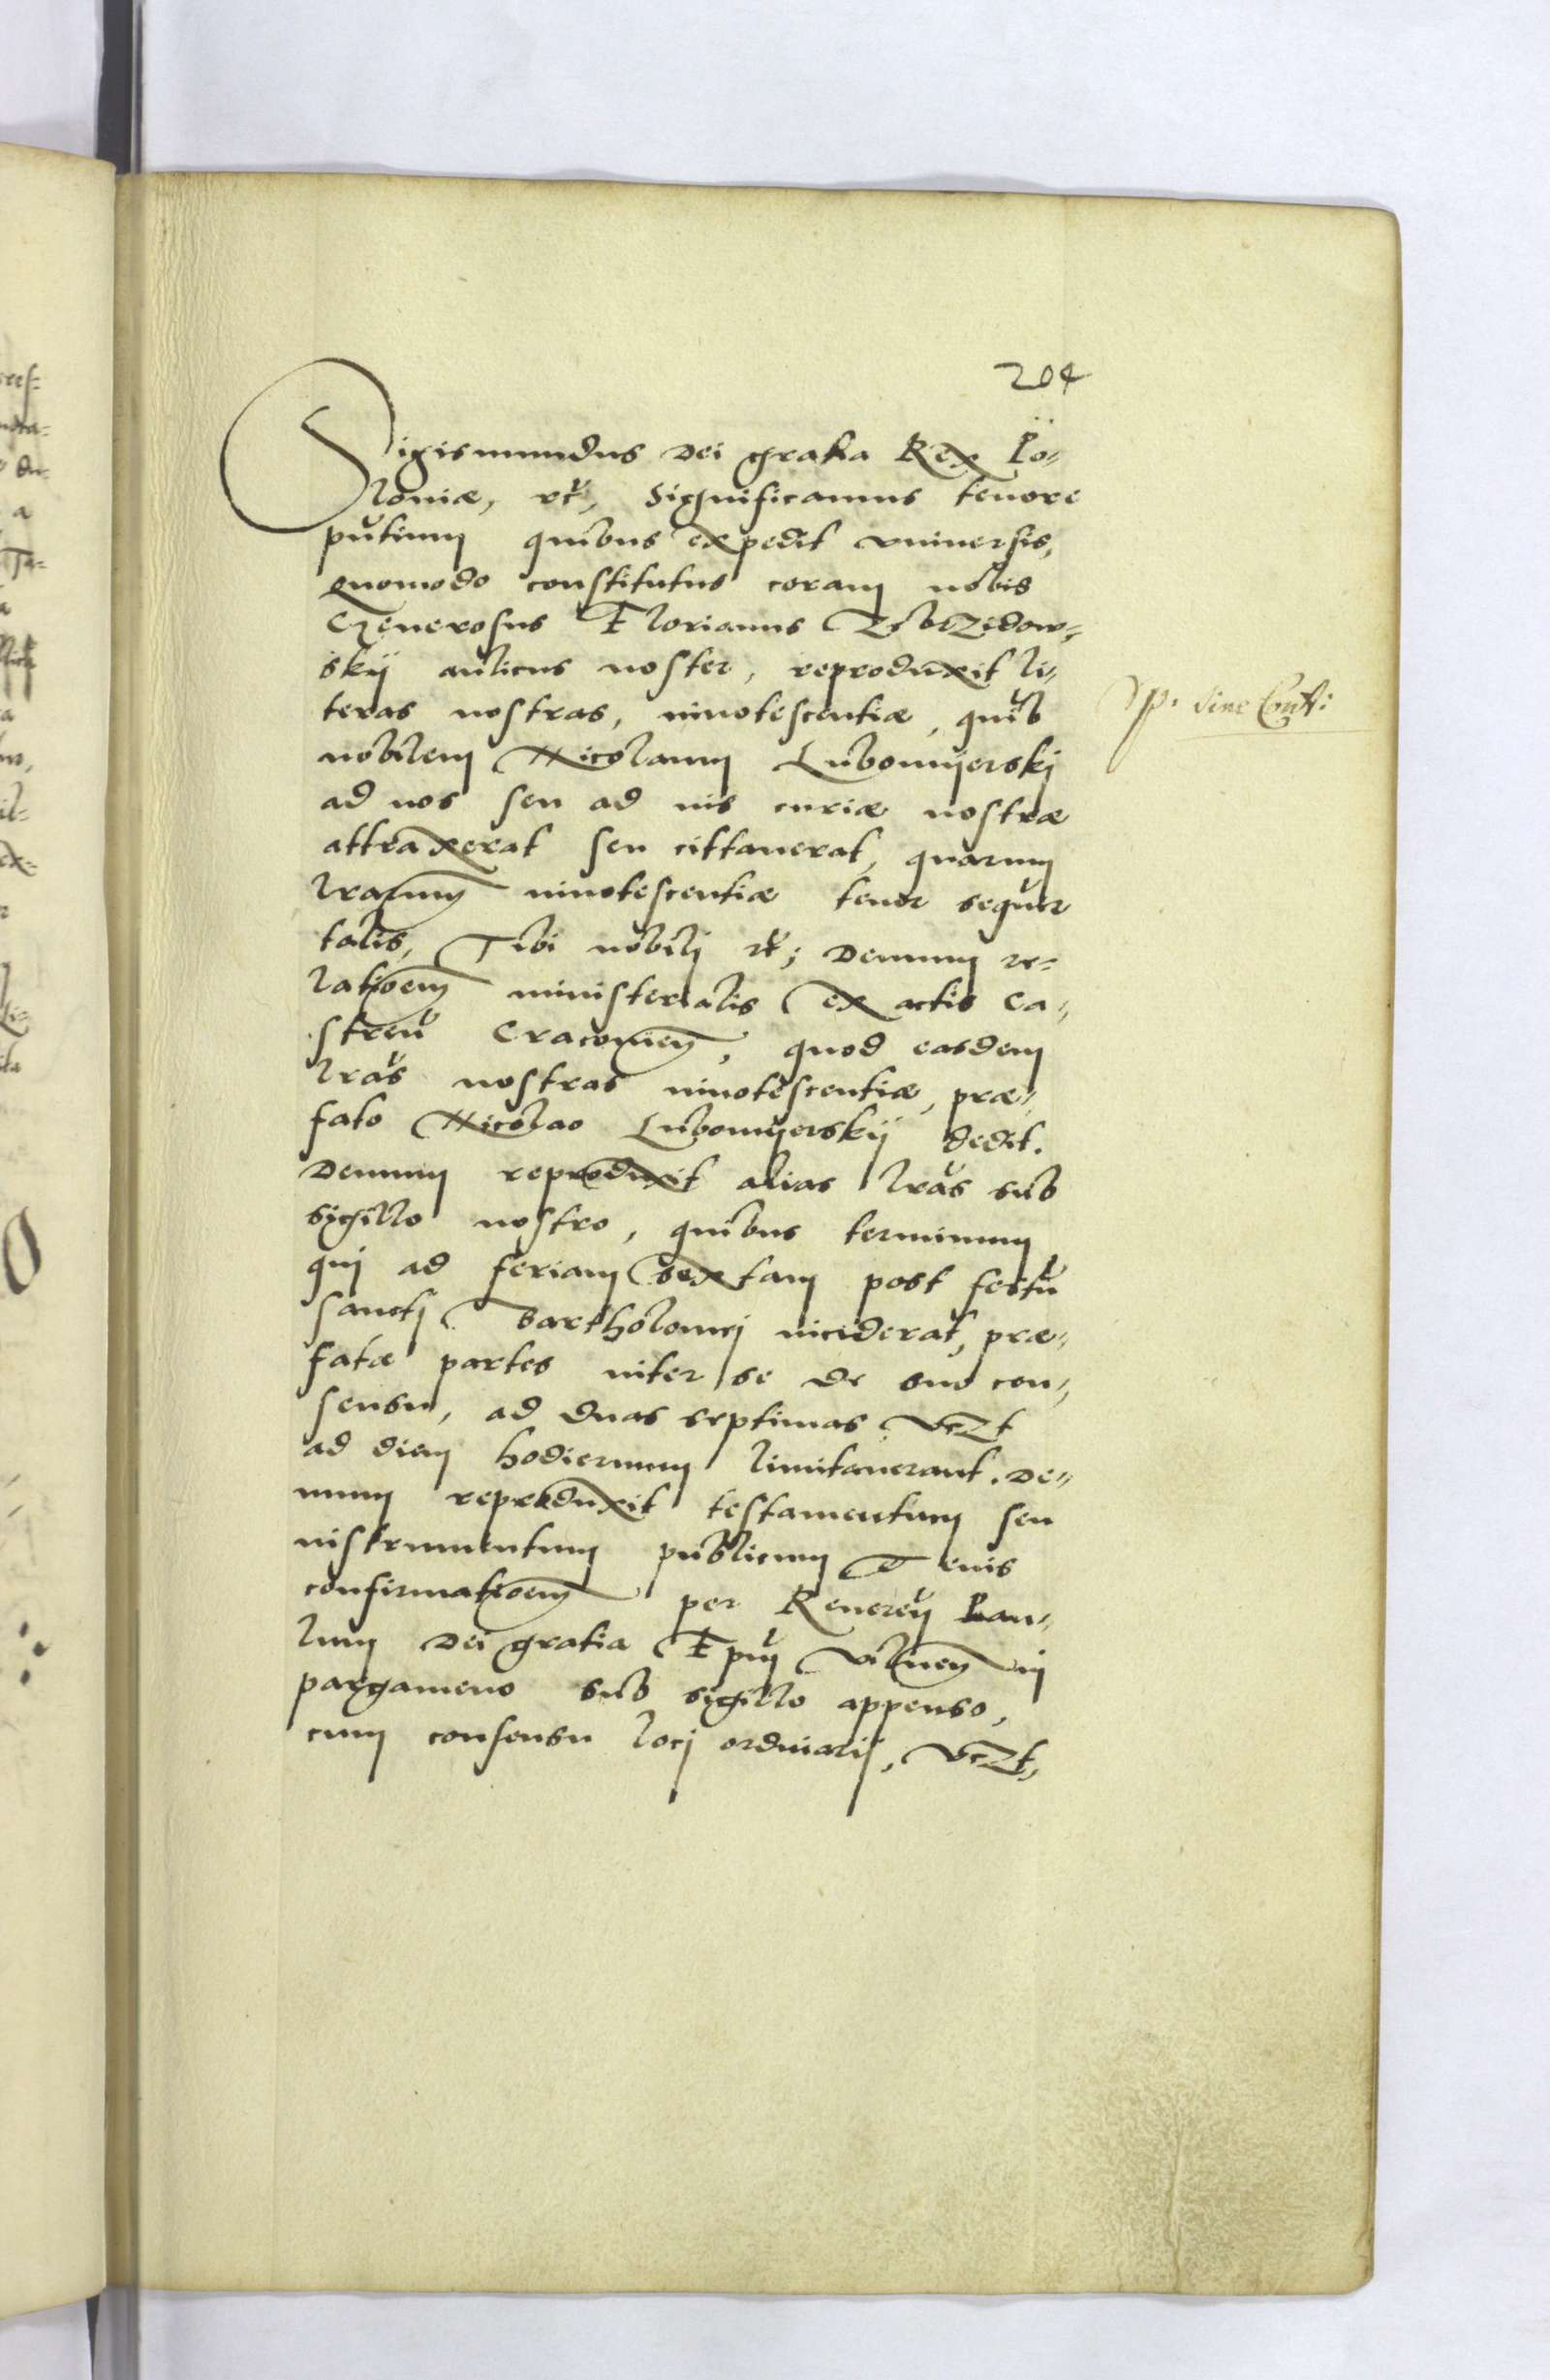 204
Sigismundus Dei gratia Rex Po„
loniæ, etc̃, Significamus tenore
pñtium quibus expedit vniuersis,
Quomodo constitutus coram nobis
Generosus Florianus Zebrzidow„
skij aulicus noster, reproduxit li„
teras nostras, innotescentiæ, quib
nobilem Nicolaum Lubomijerskj
ad nos seu ad in curiæ nostræ
attraxerat seu cittauerat, quarum
lrarum innotescentiæ tenor sequr
talis, Tibi nobilj etc̃; Demum re„
latioem ministerialis ex actis Ca„
streñ Cracouieñ, quod easdem
lras nostras innotescentiæ, præ„
fato Nicolao Lubomijerskij dedit.
Demum reproduxit alias lras sub
sigillo nostro, quibus terminum
quj ad feriam sextam post festũ
sanctj Bartholomej inciderat, præ„
fatæ partes inter se de suo con„
sensu, ad duas septimas vczt
ad diem hodiernum limitauerant. De„
mum reproduxit testamentum seu
instrumentum publicum et eius
confirmatioem per Reuereñ Pau„
lum Dei gratia Epũm Vilneñ in
pargameno sub sigillo appenso,
cum consensu locj ordinarij, vczt,
sine